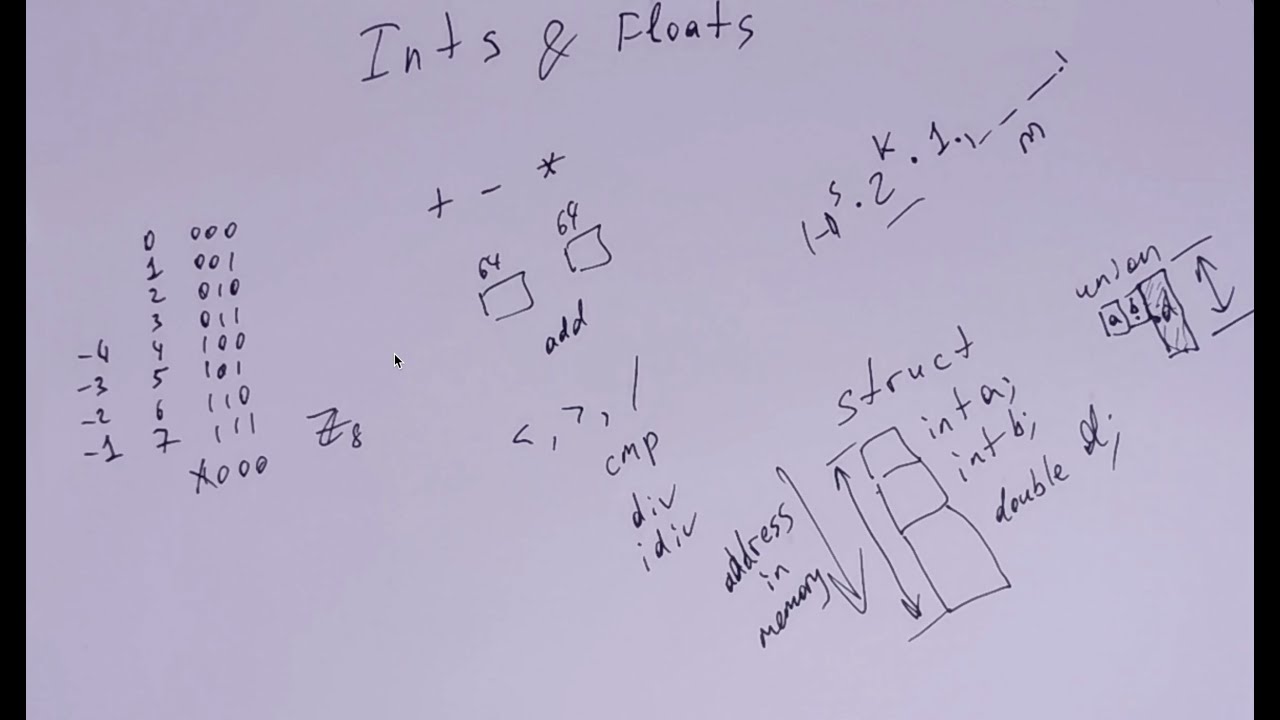 Ints & Floats
+ - *
64 64
add
0 000
1 001
2 010
3 011
-4 4 100
-3 5 101
-2 6 110
-1 7 111
1000
ℤ8
<, >, /
cmp
div
idiv
(-1)^S · 2^K · 1.
m
union
a b d
struct
int a;
int b;
double d;
address
in
memory